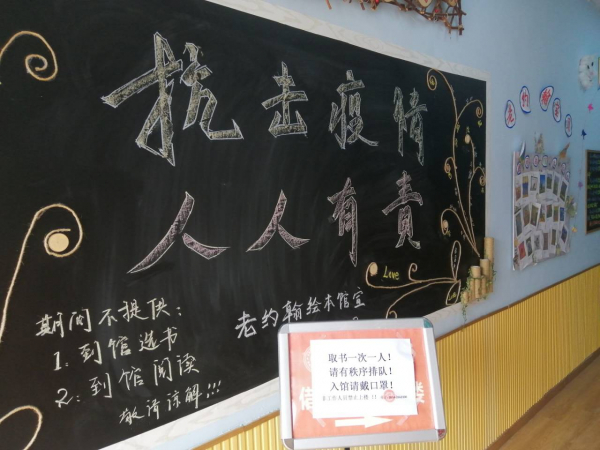 抗击疫情
人人有责
期间不提供：
1、到馆选书
2、到馆阅读
敬请谅解!!!
老约翰绘本馆宣
Love
取书一次一人！
请有秩序排队！
入馆请戴口罩！
老约翰